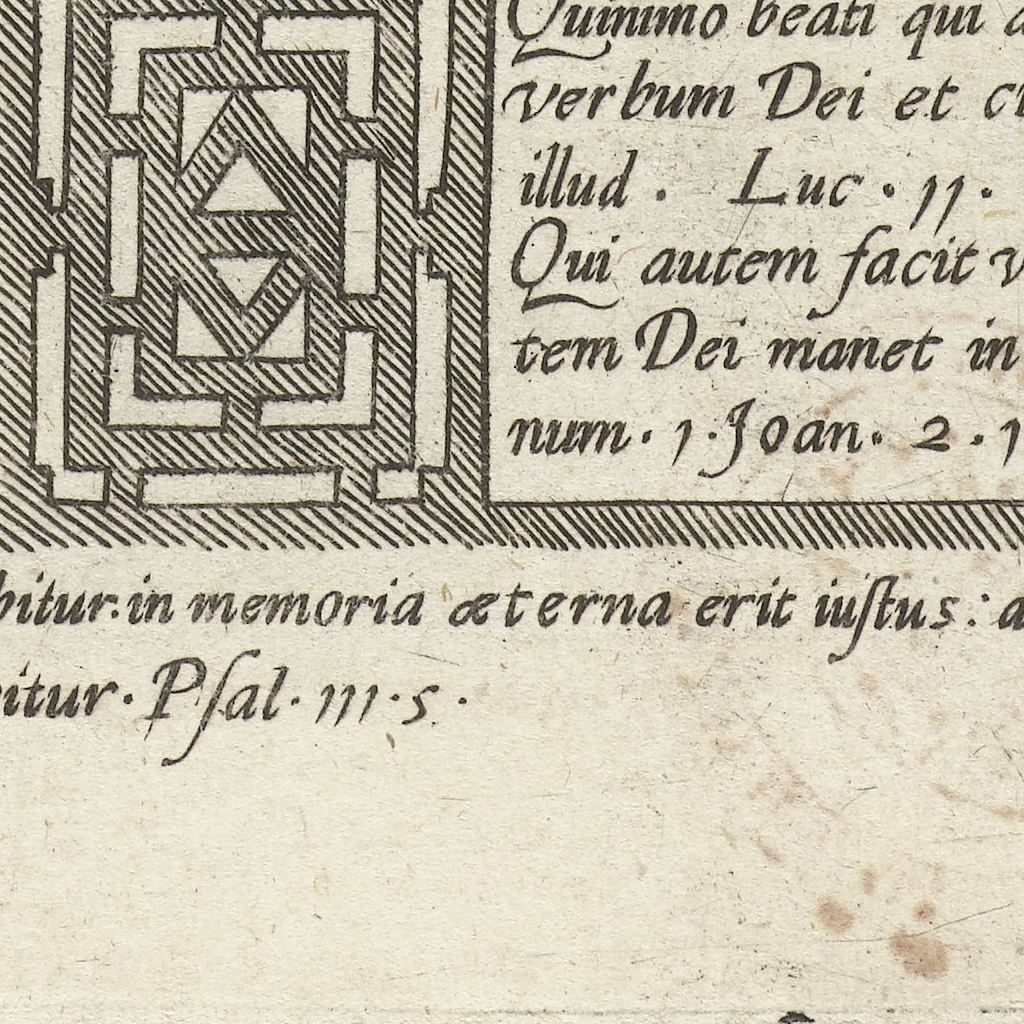 Quinimo beati qui
verbum Dei et
illud . Luc . 11 .
Qui autem facit
tem Dei manet in
num . 1 . Joan . 2 . 1
bitur . in memoria æterna erit iuſtus : a
bitur . Pſal . 111 . 5 .